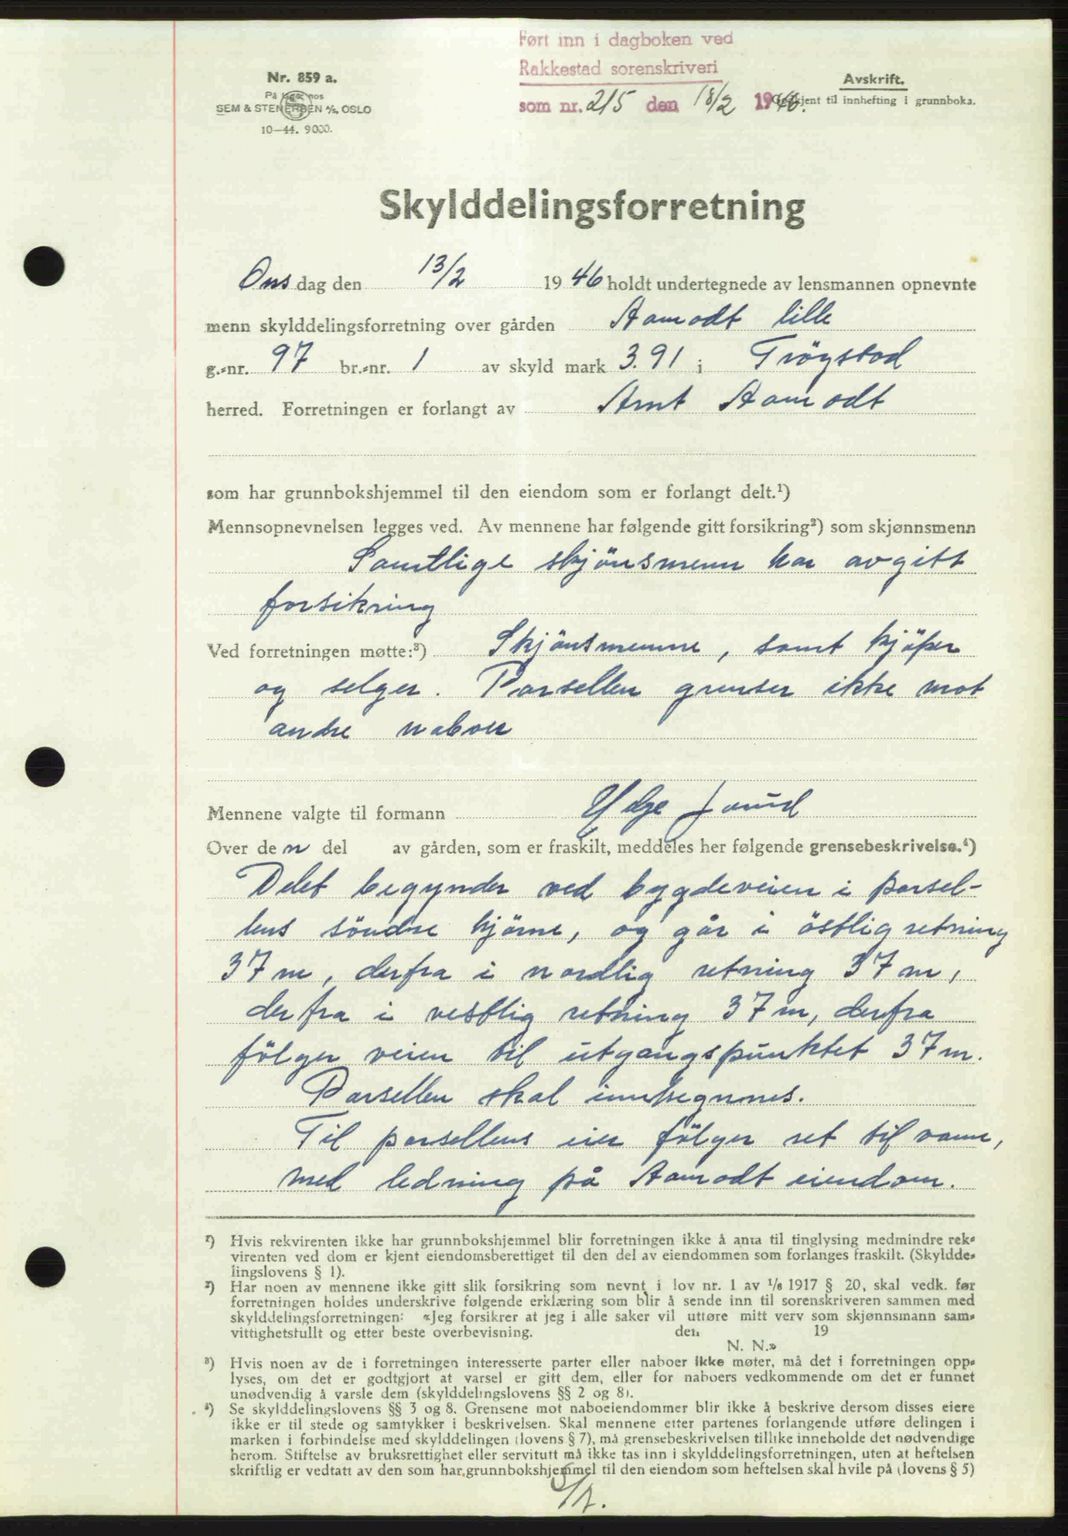 Ført inn i dagboken ved
Rakkestad sorenskriveri
som nr. 215 den 18/2 1946.
Nr. 859 a.
På lager hos
SEM & STENERSEN A/S, OSLO
10-44. 9000.
Avskrift.
Godkjent til innhefting i grunnboka.
Skylddelingsforretning
Onsdag den 13/2 1946 holdt undertegnede av lensmannen opnevnte
menn skylddelingsforretning over gården Aamodt lille
g.-nr. 97 br.-nr. 1 av skyld mark 3.91 i Trögstad
herred. Forretningen er forlangt av Arnt Aamodt
som har grunnbokshjemmel til den eiendom som er forlangt delt.¹)
Mennsopnevnelsen legges ved. Av mennene har følgende gitt forsikring²) som skjønnsmenn
Samtlige skjönsmenn har avgitt
forsikring
Ved forretningen møtte:³) Skjönsmenne, samt kjöper
og selger. Parsellen grenser ikke mot
andre naboer
Mennene valgte til formann Helge
Over den del av gården, som er fraskilt, meddeles her følgende grensebeskrivelse.⁴)
Delet begynder ved bygdeveien i parsel-
lens söndre hjörne, og går i östlig retning
37 m, derfra i nordlig retning 37 m,
derfra i vestlig retning 37 m, derfra
fölger veien til utgangspunktet 37 m.
Parsellen skal innhegnnes.
Til parsellens eier fölger ret til vann,
med ledning på Aamodt eiendom.
¹) Hvis rekvirenten ikke har grunnbokshjemmel blir forretningen ikke å anta til tinglysing medmindre rek-
virenten ved dom er kjent eiendomsberettiget til den del av eiendommen som forlanges fraskilt. (Skyldde-
lingslovens § 1).
²) Har noen av mennene ikke gitt slik forsikring som nevnt i lov nr. 1 av 1/6 1917 § 20, skal vedk. før
forretningen holdes underskrive følgende erklæring som blir å sende inn til sorenskriveren sammen med
skylddelingsforretningen: «Jeg forsikrer at jeg i alle saker vil utføre mitt verv som skjønnsmann sam-
vittighetsfullt og etter beste overbevisning. den 19
N. N.»
³) Hvis noen av de i forretningen interesserte parter eller naboer ikke møter, må det i forretningen opp-
lyses, om det er godtgjort at varsel er gitt dem, eller for naboers vedkommende om det er funnet
unødvendig å varsle dem (skylddelingslovens §§ 2 og 8).
⁴) Se skylddelingslovens §§ 3 og 8. Grensene mot naboeiendommer blir ikke å beskrive dersom disses eiere
ikke er til stede og samtykker i beskrivelsen. Skal mennene etter partenes forlangende utføre delingen i
marken i forbindelse med skylddelingen (lovens § 7), må grensebeskrivelsen tillike inneholde det nødvendige
herom. Stiftelse av bruksrettighet eller servitutt må ikke tas inn i skylddelingsforretningen, uten at heftelsen
skriftlig er vedtatt av den som har grunnbokshjemmel til den eiendom som heftelsen skal hvile på (lovens § 5)